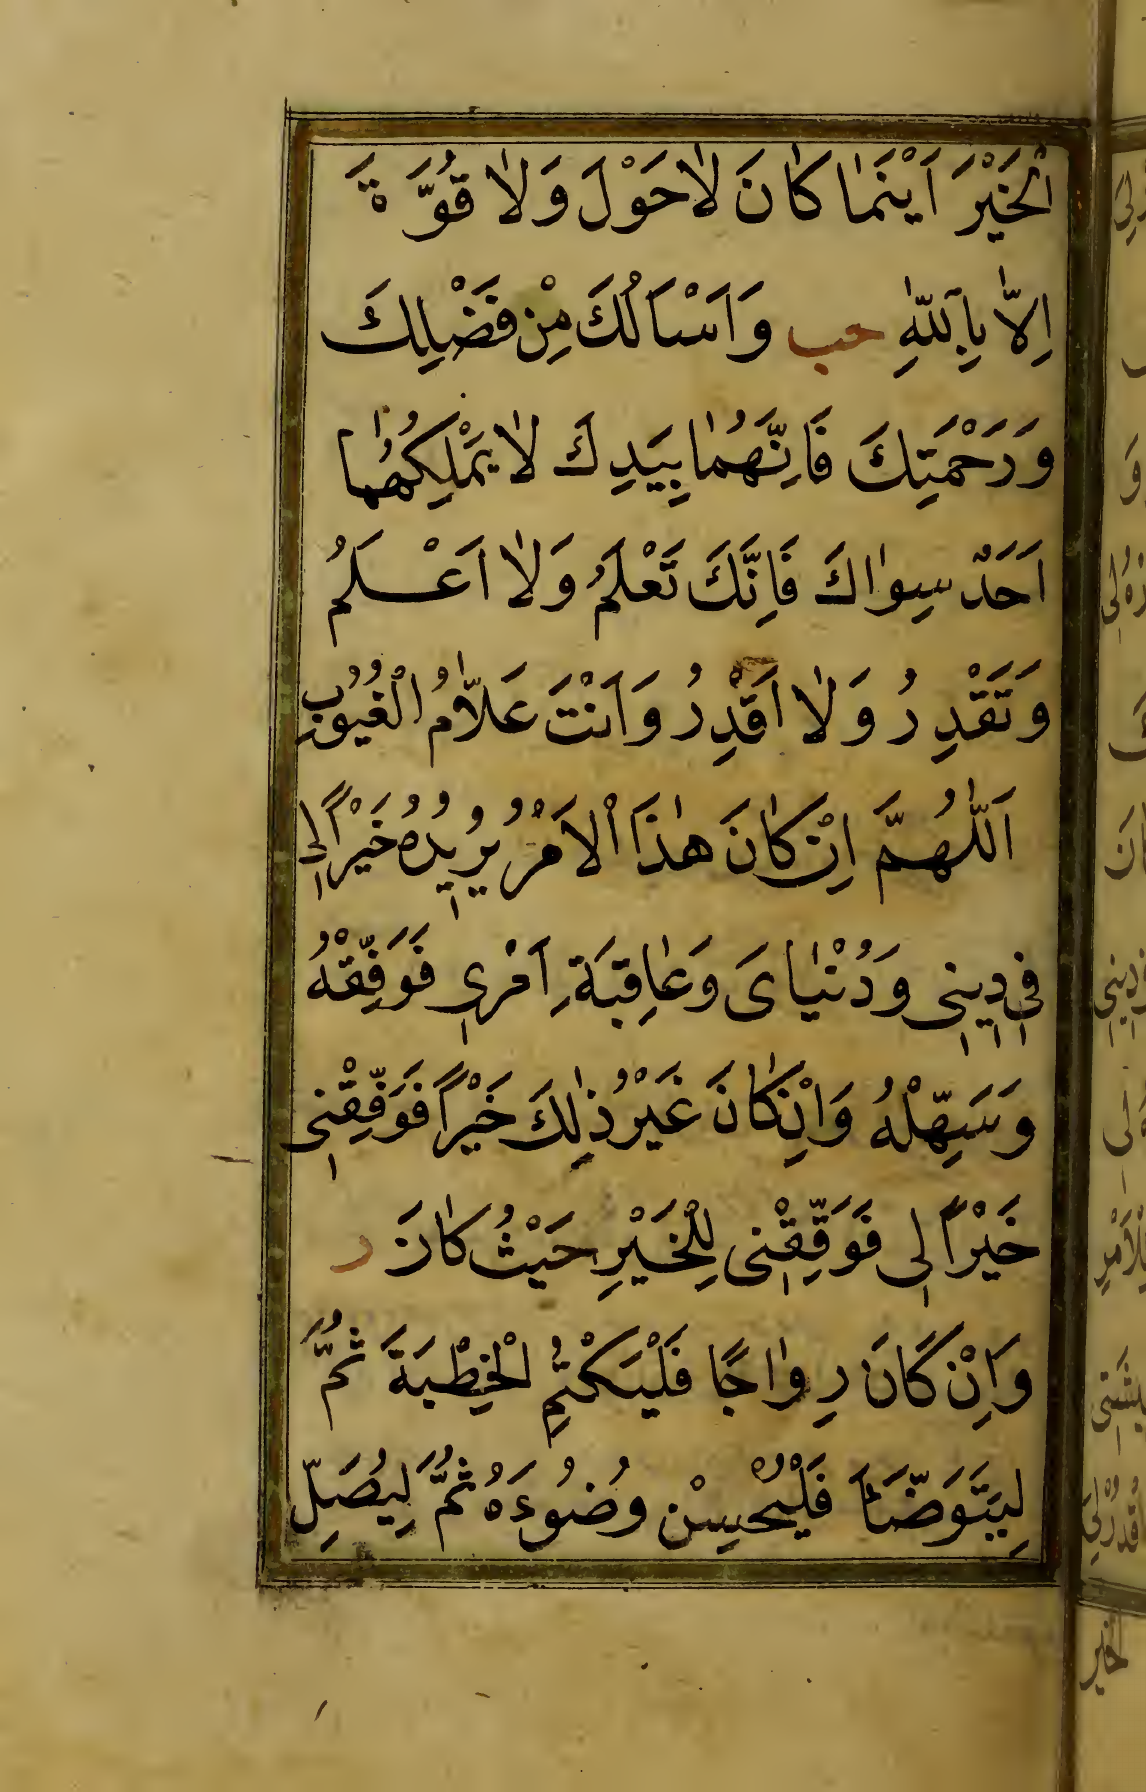 الْخَيْرَ اَيْنَمٰا كٰانَ لٰا حَوْلَ وَلٰا قُوَّةَ
اِلّٰا بِاللّٰهِ حب وَاَسْاَلُكَ مِنْ فَضْلِكَ
وَرَحْمَتِكَ فَاِنَّهُمٰا بِيَدِكَ لٰا يَمْلِكُهُمٰا
اَحَدٌ سِوٰاكَ فَاِنَّكَ تَعْلَمُ وَلٰا اَعْلَمُ
وَتَقْدِرُ وَلٰا اَقْدِرُ وَاَنْتَ عَلّٰامُ الْغُيُوبِ
اَللّٰهُمَّ اِنْ كٰانَ هٰذَا الْاَمْرُ يُرِيدُهُ خَيْرًا لِي
فِي دِينِي وَدُنْيٰايَ وَعٰاقِبَةَِ اَمْرِي فَوَفِّقْهُ
وَسَهِّلْهُ وَاِنْ كٰانَ غَيْرُ ذٰلِكَ خَيْرًا فَوَفِّقْنِي
خَيْرًا لِي فَوَفِّقْنِي لِلْخَيْرِ حَيْثُ كٰانَ ر
وَاِنْ كَانَ رِوٰاجًا فَلْيَكْتُمِ الْخِطْبَةَ ثُمَّ
لِيَتَوَضَّأَ فَلْيُحْسِنْ وُضُوءَهُ ثُمَّ لِيُصَلِّ